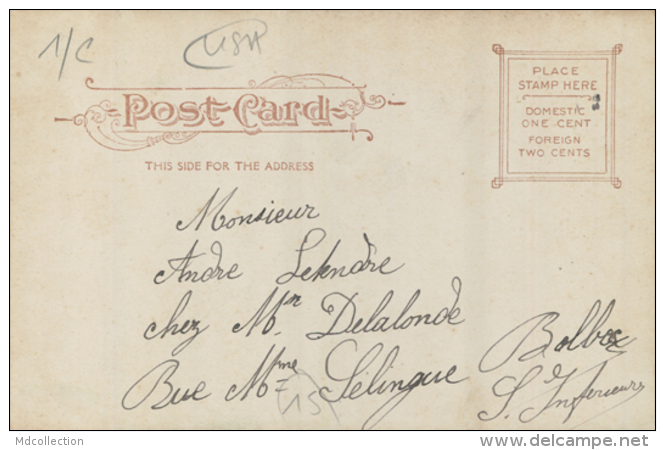 1/C
USA
POST CARD
THIS SIDE FOR THE ADDRESS
PLACE
STAMP HERE
DOMESTIC
ONE CENT
FOREIGN
TWO CENTS
Monsieur
Andre
chez Mr. Delalonde
Rue Mme Sélingue
Bolbec
S. Inférieure
15
Mdcollection
delcampe.net